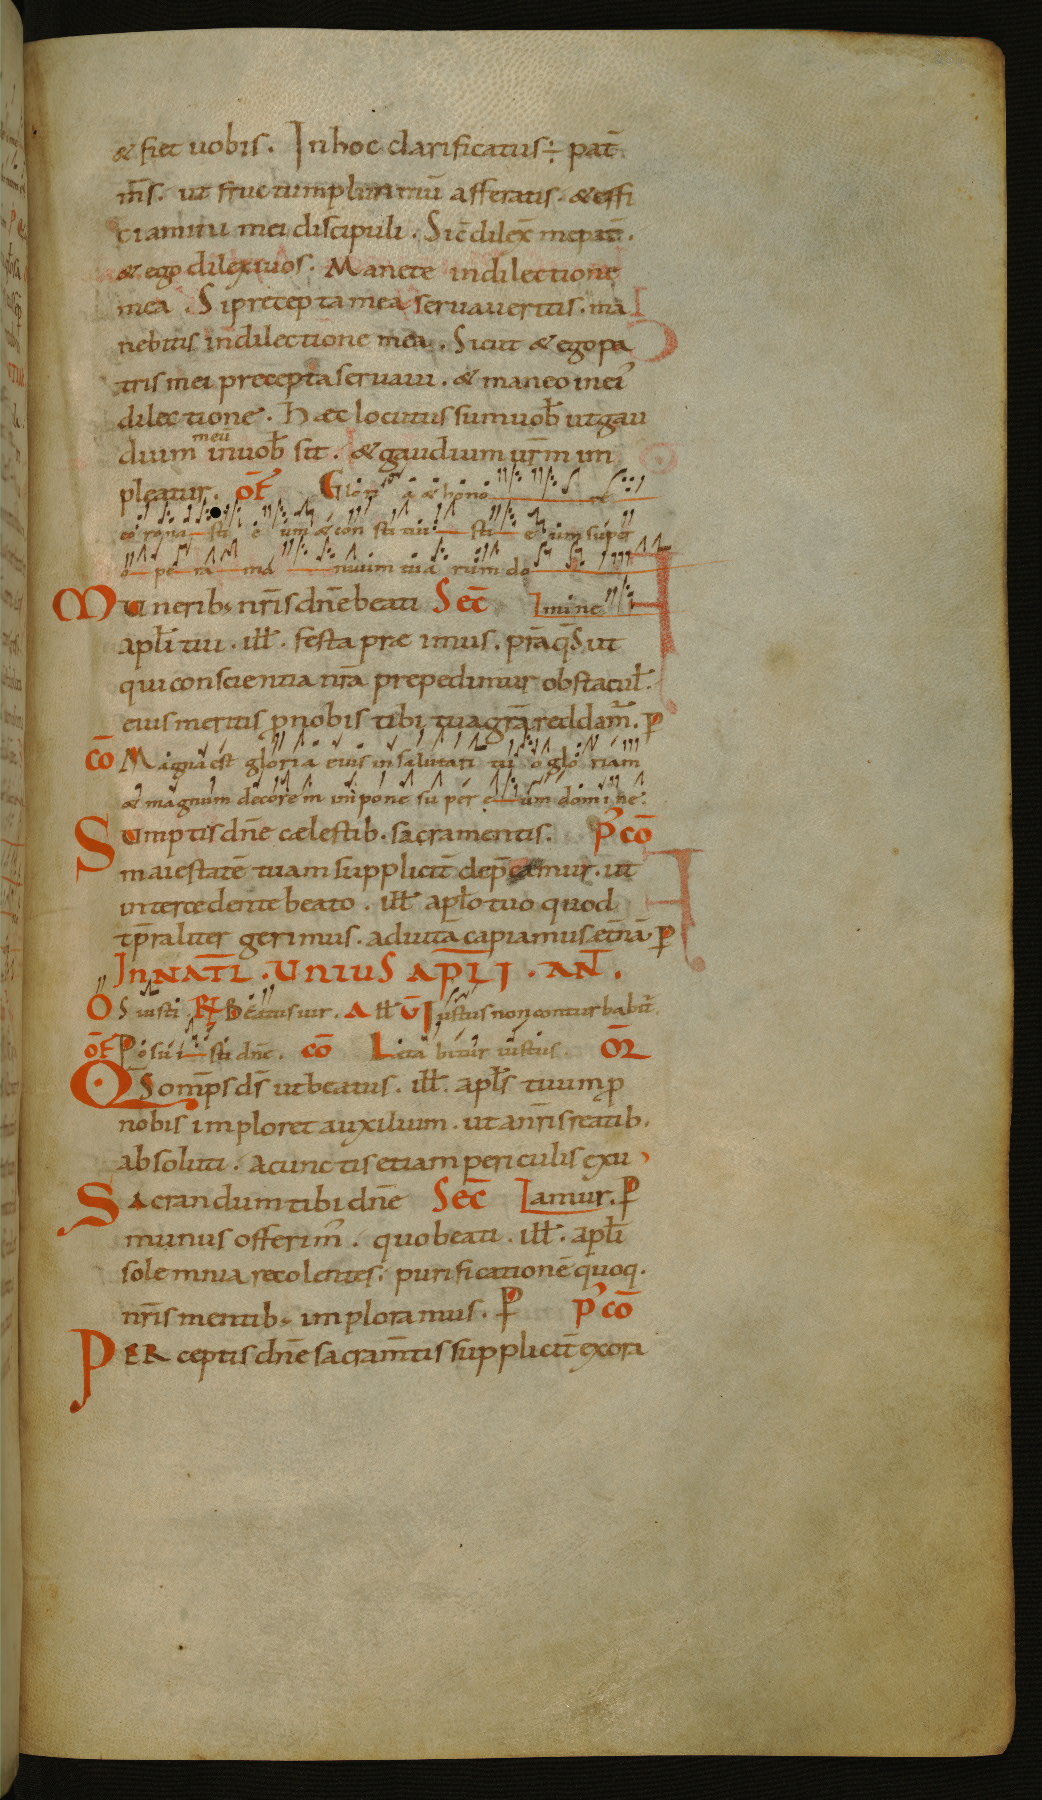 & fiet uobis. In hoc clarificatus ÷ pat̄
m̄s. ut fructum plurimū afferatis. & effi
ciamini mei discipuli. Sic̄ dilex̄ me pat̄.
& ego dilexi uos. Manete in dilectione
mea. Si precepta mea seruaueritis. ma
nebitis in dilectione mea. Sicut & ego pa
tris mei precepta seruaui. & maneo in ei᾽
dilectione. Haec locutus sum uob̄ ut gau
dium meū in uob̄ sit. & gaudium ur̄m im
pleatur. OF̄ Glori a & hono re
co rona sti e um & con sti tui sti e um super
o pe ra ma nuum tua rum do
Munerib; nr̄is dn̄e beati Sec̄ mine
apl̄i tui. ill̄. festa preimus. pr̄a q̄s ut
qui conscientia nr̄a prepedimur obstacul̄.
eius meritis p nobis tibi tua gr̄a reddam̄. P
CŌ Magna est gloria eius in salutari tu o glo riam
& magnum decorem inpone su per e um domi ne.
Sumptis dn̄e caelestib. sacramentis. P᾽CŌ
maiestatē tuam supplicit̄ dep̄camur. ut
intercedente beato. ill̄ apl̄o tuo quod
tp̄raliter gerimus. ad uita capiamus et̄nā P
IN NAT̄L. UNIUS APL̄I. AN̄.
Os iusti. R̄ Beatus uir. All̄ V̄ Iustus non conturbabit̄.
OF̄ Posui sti dn̄e. CŌ Leta bitur iustus OR̄
Qs omp̄s ds̄ ut beatus. ill̄. apl̄s tuum p
nobis imploret auxilium. ut a nr̄is reatib.
absoluti. a cunctis etiam periculis exu
Sacrandum tibi dn̄e Sec̄ amur. P
munus offerim᾽. quo beati. ill̄. apl̄i
solemnia recolentes. purificationē quoq.
nr̄is mentib; imploramus. P P᾽CŌ
PERceptis dn̄e sacram̄tis supplicit̄ exora